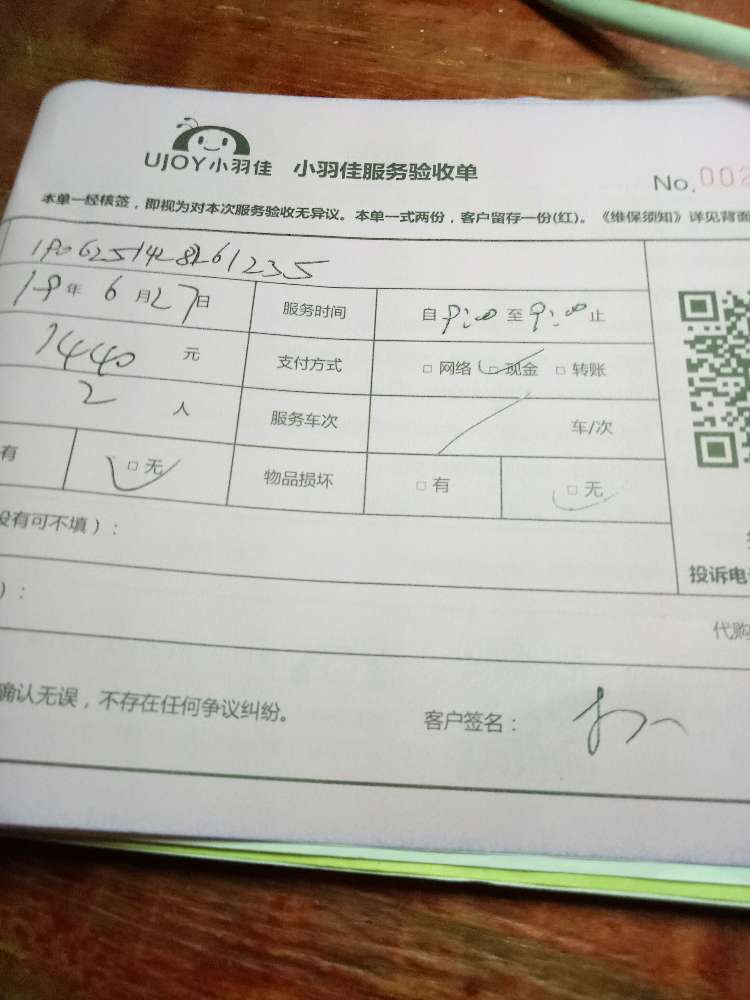 UJOY小羽佳 小羽佳服务验收单
No.002
本单一经核签，即视为对本次服务验收无异议。本单一式两份，客户留存一份(红)。《维保须知》详见背面
19年6月27日 服务时间 自9:00至9:00止
1440元 支付方式 □网络 □现金 □转账
2人 服务车次 车/次
有 □无 物品损坏 □有 □无
没有可不填）：
投诉电
）：
代购
确认无误，不存在任何争议纠纷。 客户签名：